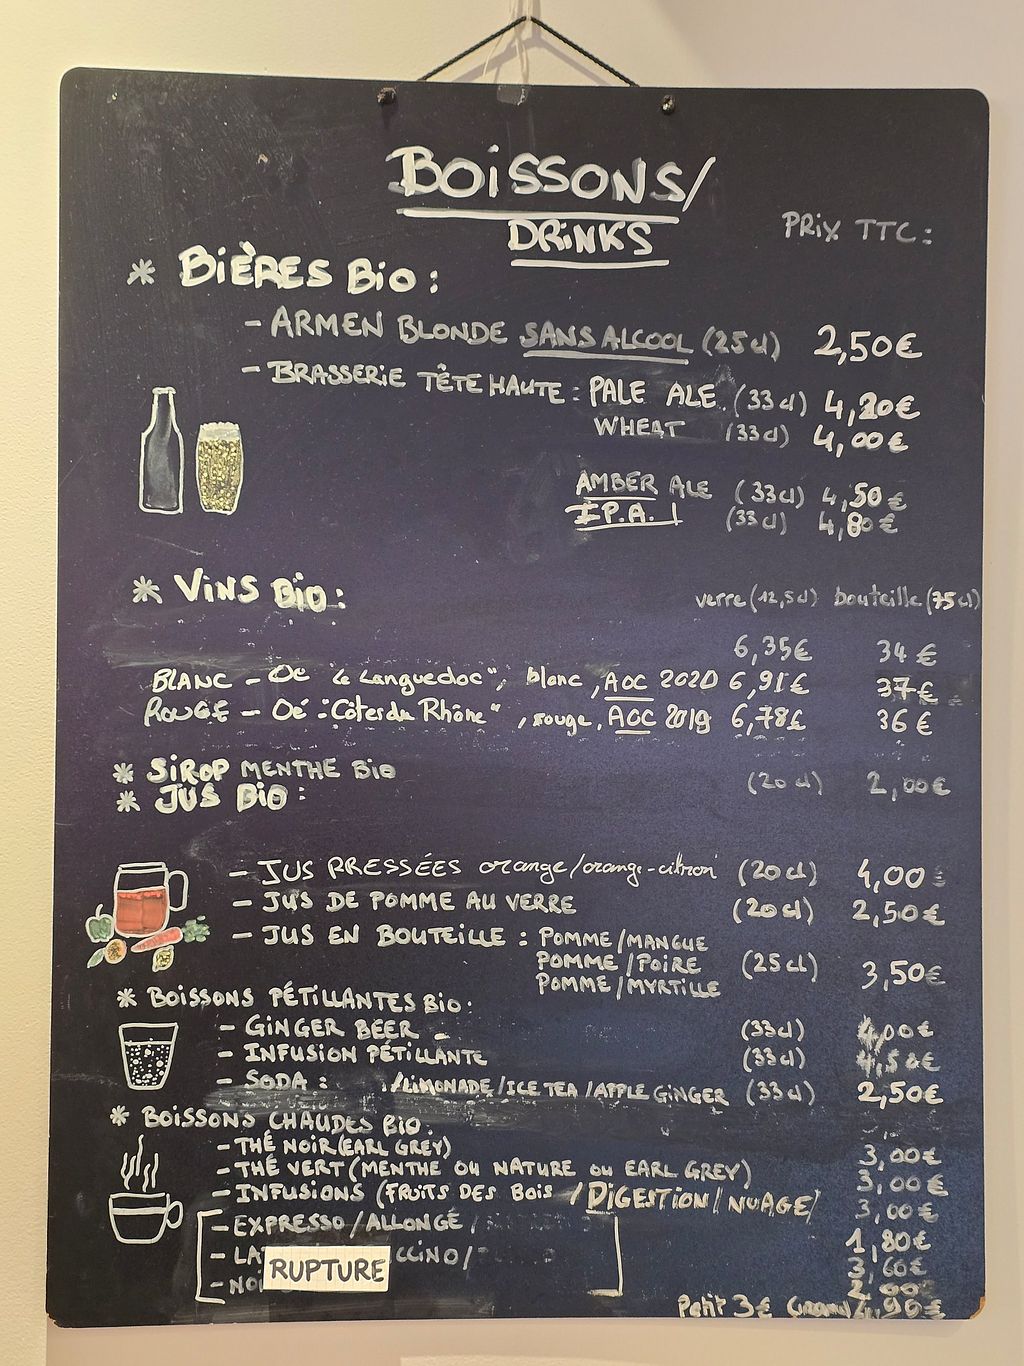 BOISSONS/
DRINKS
PRIX TTC:
* BIÈRES BIO :
- ARMEN BLONDE SANS ALCOOL (25cl) 2,50€
- BRASSERIE TÊTE HAUTE : PALE ALE (33cl) 4,20€
WHEAT (33cl) 4,00€
AMBER ALE (33cl) 4,50€
I.P.A. (33cl) 4,80€
* VINS BIO : verre (12,5cl) bouteille (75cl)
6,35€ 34€
BLANC - Oé "Le Languedoc", blanc, AOC 2020 6,91€ 37€
ROUGE - Oé "Côtes du Rhône", rouge, AOC 2019 6,78€ 36€
* SIROP MENTHE BIO (20cl) 2,00€
* JUS BIO :
- JUS PRESSÉES orange/orange-citron (20cl) 4,00
- JUS DE POMME AU VERRE (20cl) 2,50€
- JUS EN BOUTEILLE : POMME/MANGUE
POMME/POIRE (25cl) 3,50€
POMME/MYRTILLE
* BOISSONS PÉTILLANTES BIO :
- GINGER BEER (33cl) 4,00€
- INFUSION PÉTILLANTE (33cl) 4,50€
- SODA : /LIMONADE/ICE TEA/APPLE GINGER (33cl) 2,50€
* BOISSONS CHAUDES BIO :
- THÉ NOIR (EARL GREY) 3,00€
- THÉ VERT (MENTHE OU NATURE OU EARL GREY) 3,00€
- INFUSIONS (FRUITS DES BOIS / DIGESTION / NUAGE/ 3,00€
- EXPRESSO/ALLONGÉ / 1,80€
- LA CCINO/ 3,60€
RUPTURE
- NO 2,00
Petit 3€ Grand 4,90€